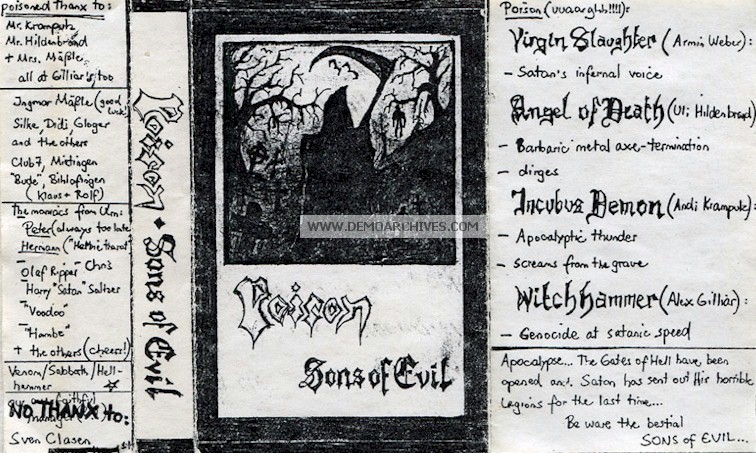 poisoned Thanx to:
Mr. Kramputz
Mr. Hildenbrand
+ Mrs. Mäßle,
all at Gilliar's, too
Ingmar Mäßle (good
luck!)
Silke, Didi, Gloger
and the others
Club 7, Mietingen
"Bude", Bihlafingen
(Klaus + Rolf)
The maniacs from Ulm:
Peter (always too late)
Hermann
- Olaf "Ripper" Chris
- Harry "Satan" Saltzer
- "Voodoo"
- "Hombe"
+ the others (cheers!)
Venom/Sabbath/Hell-
hammer
our faithful
manager
NO THANX to:
Sven Clasen
Poison • Sons of Evil
WWW.DEMOARCHIVES.COM
Poison
Sons of Evil
Poison (uuaarghh!!!!):
Virgin Slaughter (Armin Weber):
- Satan's infernal voice
Angel of Death (Uli Hildenbrand)
- Barbaric metal axe-termination
- dirges
Incubus Demon (Andi Kramputz):
- Apocalyptic thunder
- screams from the grave
Witchhammer (Alex Gilliar):
- Genocide at satanic speed
Apocalypse... The Gates of Hell have been
opened and Satan has sent out His horrible
Legions for the last time...
Be ware the bestial
SONS of EVIL...